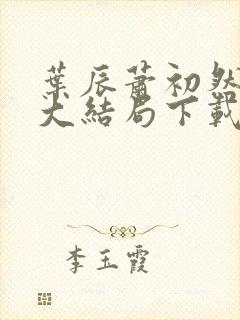 葉辰蕭初然
大結局下載
李玉霞